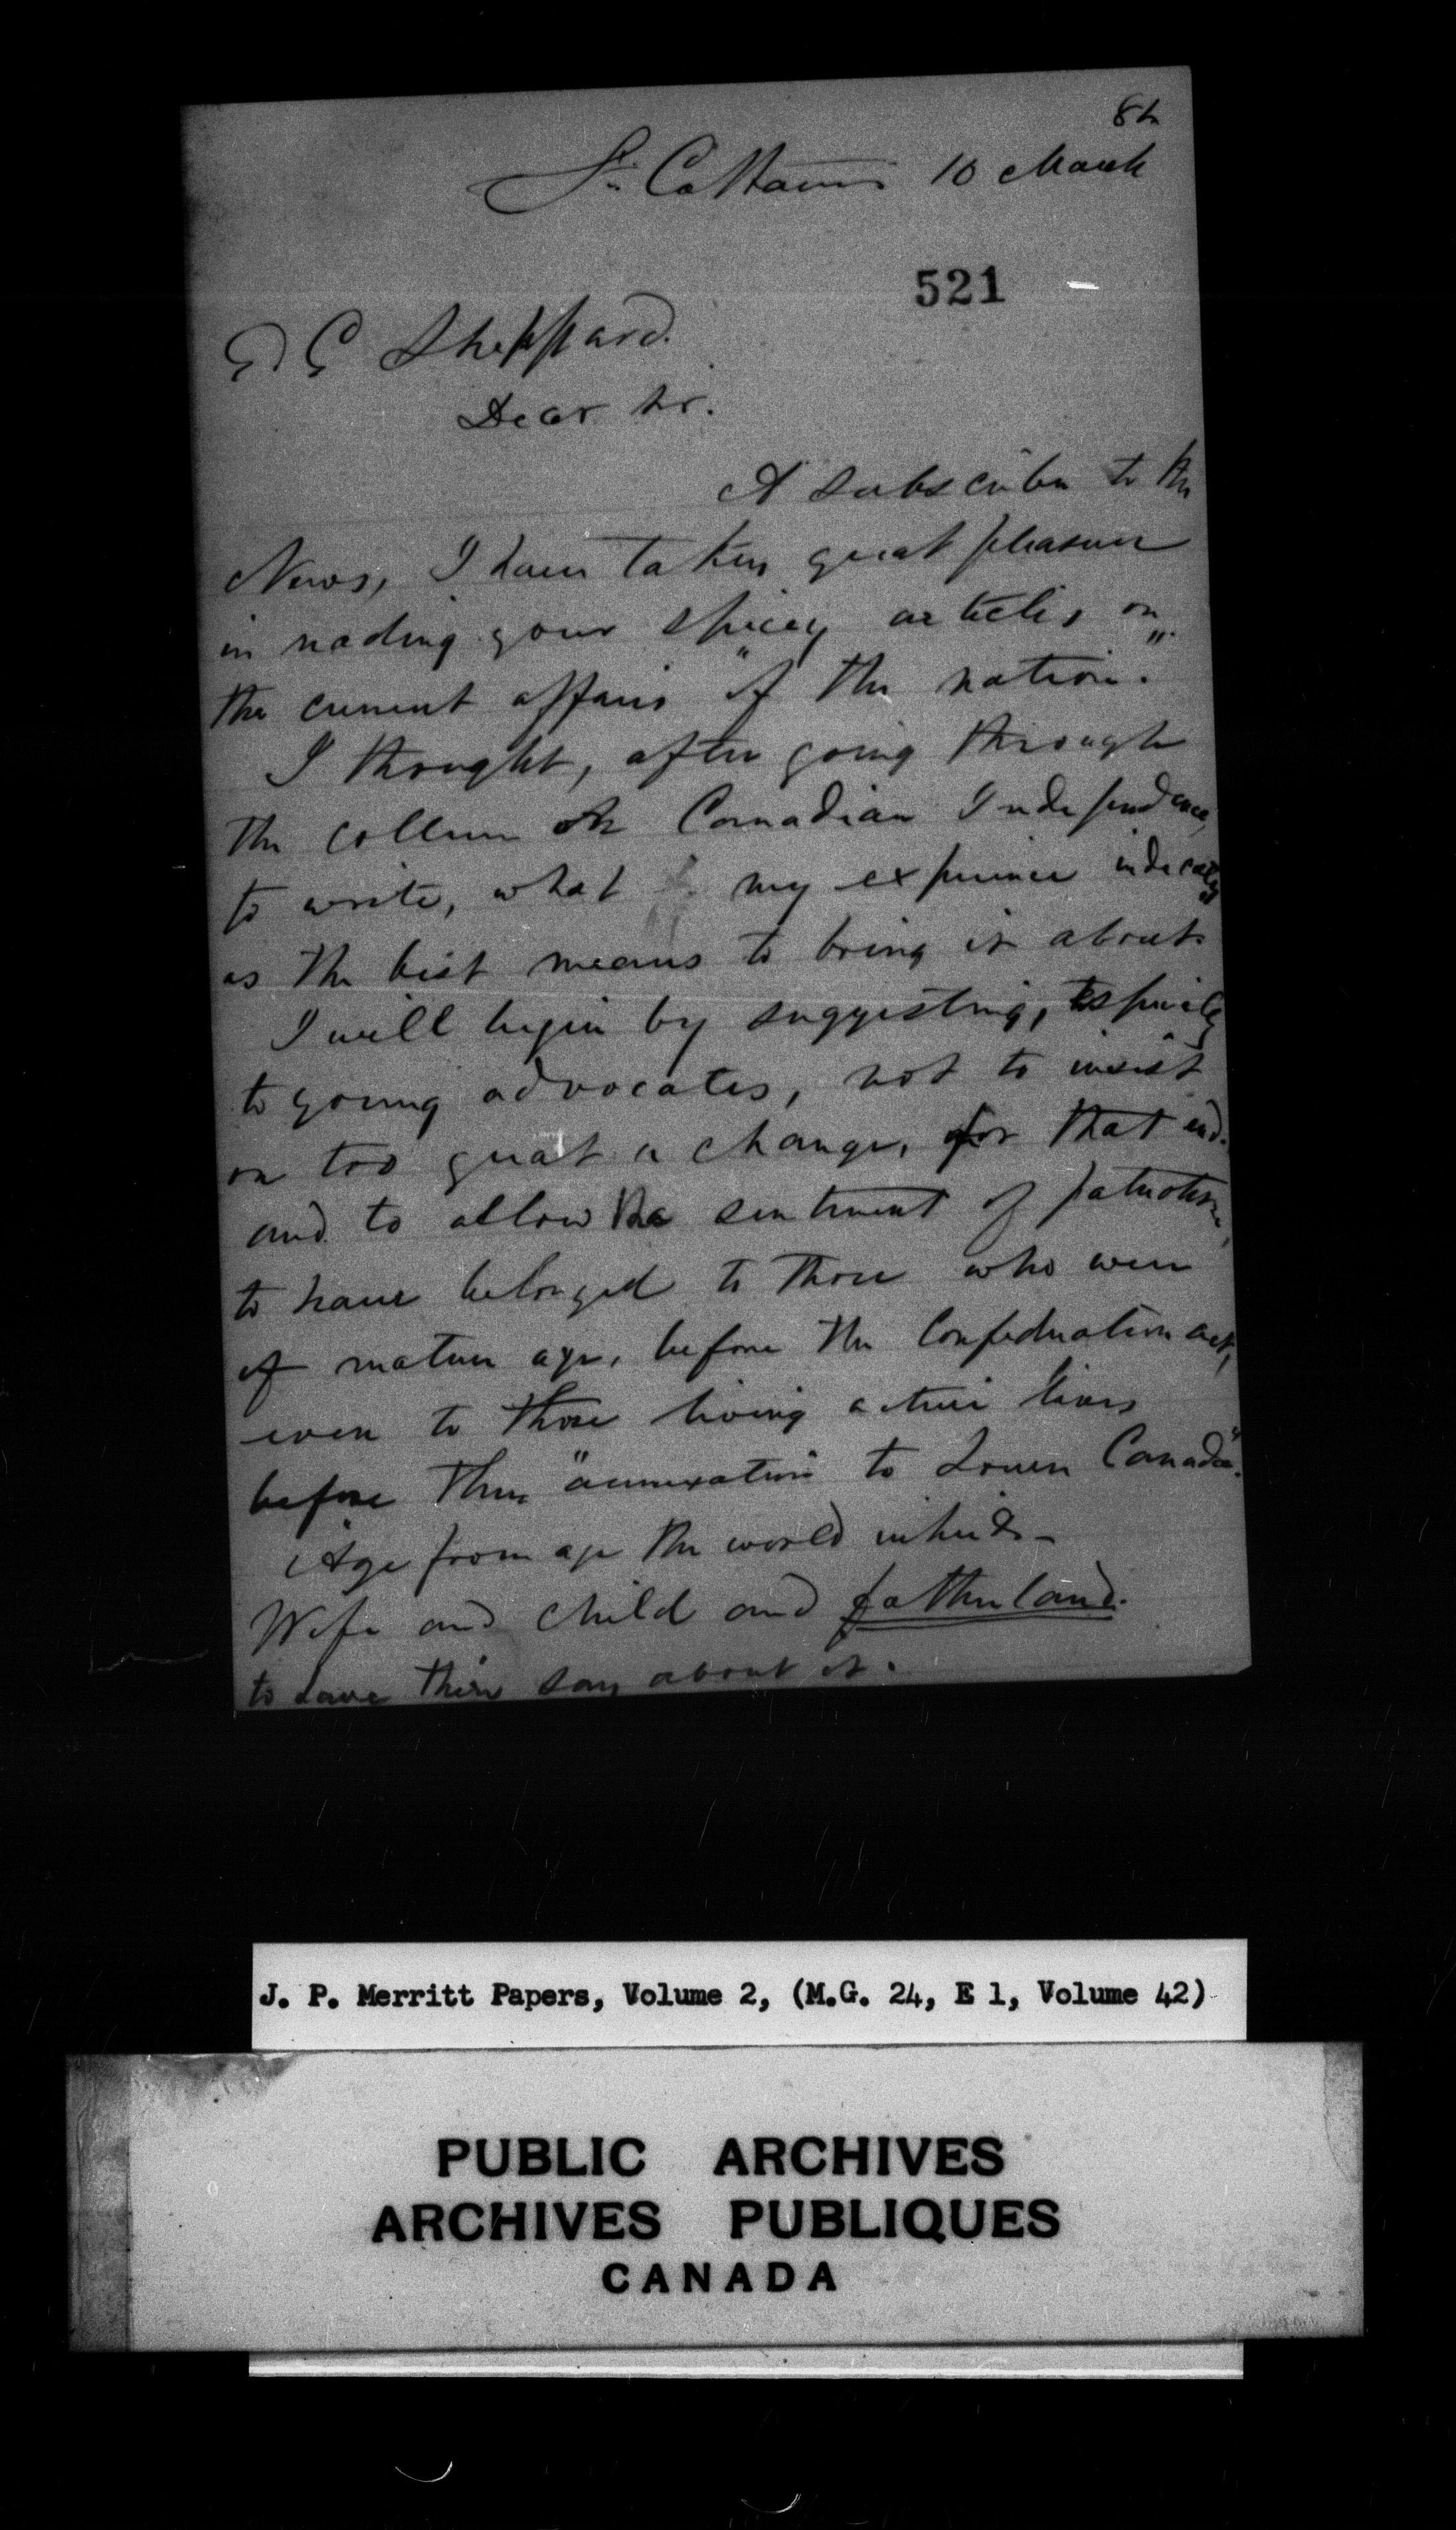 82
St. Catharines 10 March
521
E E Sheppard.
Dear Sir.
A subscriber to the
News, I have taken great pleasure
in reading your spicey articles on
the current affairs "of the nation."
I thought, after going through
the collum on Canadian Independence,
to write, what my experience indicates
as the best means to bring it about.
I will begin by suggesting, especily
to young advocates, not to insist
on too great a change, for that end.
and to allow the sentiment of patriotism,
to have belonged to those who were
of mature age, before the Confederation act,
even to those living active lives
before their "annexation to Lower Canada".
Age from age the world inherits -
Wife and child and fatherland.
to have their say about it.
J. P. Merritt Papers, Volume 2, (M.G. 24, E 1, Volume 42)
PUBLIC ARCHIVES
ARCHIVES PUBLIQUES
CANADA